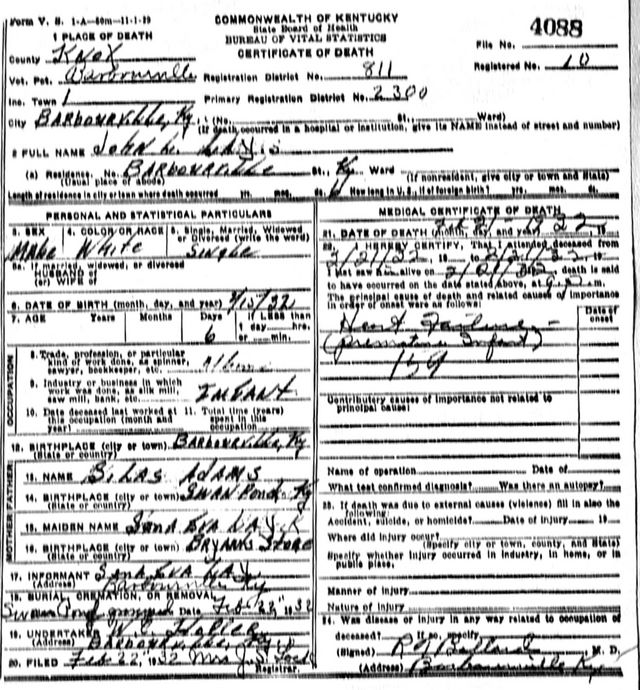 Form V. S. 1-A-60m-11-1-29
COMMONWEALTH OF KENTUCKY
State Board of Health
BUREAU OF VITAL STATISTICS
CERTIFICATE OF DEATH
File No. 4088
Registered No. 10
1 PLACE OF DEATH
County Knox
Vot. Pct. Barbourville Registration District No. 811
Inc. Town 1 Primary Registration District No. 2300
City BARBOURVILLE, Ky. (No. St., Ward)
(If death occurred in a hospital or institution, give its NAME instead of street and number)
2 FULL NAME John
(a) Residence. No. BARBOURVILLE St., Ky Ward
(Usual place of abode) (If nonresident, give city or town and State)
Length of residence in city or town where death occurred yrs. mos. ds. How long in U. S., if of foreign birth? yrs. mos. ds.
PERSONAL AND STATISTICAL PARTICULARS
3. SEX 4. COLOR OR RACE 5. Single, Married, Widowed
or Divorced (write the word)
Male White Single
5a. If married, widowed, or divorced
HUSBAND of
(or) WIFE of
6. DATE OF BIRTH (month, day, and year) 2/15/32
7. AGE Years Months Days If LESS than
1 day hrs.
6 or min.
OCCUPATION
8. Trade, profession, or particular
kind of work done, as spinner,
sawyer, bookkeeper, etc.
9. Industry or business in which
work was done, as silk mill,
saw mill, bank, etc. INFANT
10. Date deceased last worked at 11. Total time (years)
this occupation (month and spent in this
year) occupation
12. BIRTHPLACE (city or town) BARBOURVILLE, Ky
(State or country)
FATHER
13. NAME SILAS ADAMS
14. BIRTHPLACE (city or town) SWAN Pond, Ky
(State or country)
MOTHER
15. MAIDEN NAME
16. BIRTHPLACE (city or town) BRYANTS STORE
(State or country)
17. INFORMANT
(Address) Barbourville Ky
18. BURIAL, CREMATION, OR REMOVAL
Swan Pond Date Feb 22" 1932
19. UNDERTAKER
(Address) BARBOURVILLE, Ky
20. FILED Feb 22" 1932 Mrs
Registrar.
MEDICAL CERTIFICATE OF DEATH
21. DATE OF DEATH (month, day, and year) 19
22. I HEREBY CERTIFY, That I attended deceased from
2/21/32, 19 to 2/21/32, 19
I last saw h alive on 2/21/32, death is said
to have occurred on the date stated above, at m.
The principal cause of death and related causes of importance
in order of onset were as follows:
Date of
onset
Heart Failure -
(Premature Infant)
159
Contributory causes of importance not related to
principal cause:
Name of operation Date of
What test confirmed diagnosis? Was there an autopsy?
23. If death was due to external causes (violence) fill in also the
following:
Accident, suicide, or homicide? Date of injury 19
Where did injury occur?
(Specify city or town, county, and State)
Specify whether injury occurred in industry, in home, or in
public place.
Manner of injury
Nature of injury
24. Was disease or injury in any way related to occupation of
deceased? If so, specify
(Signed) M. D.
(Address) Barbourville Ky.